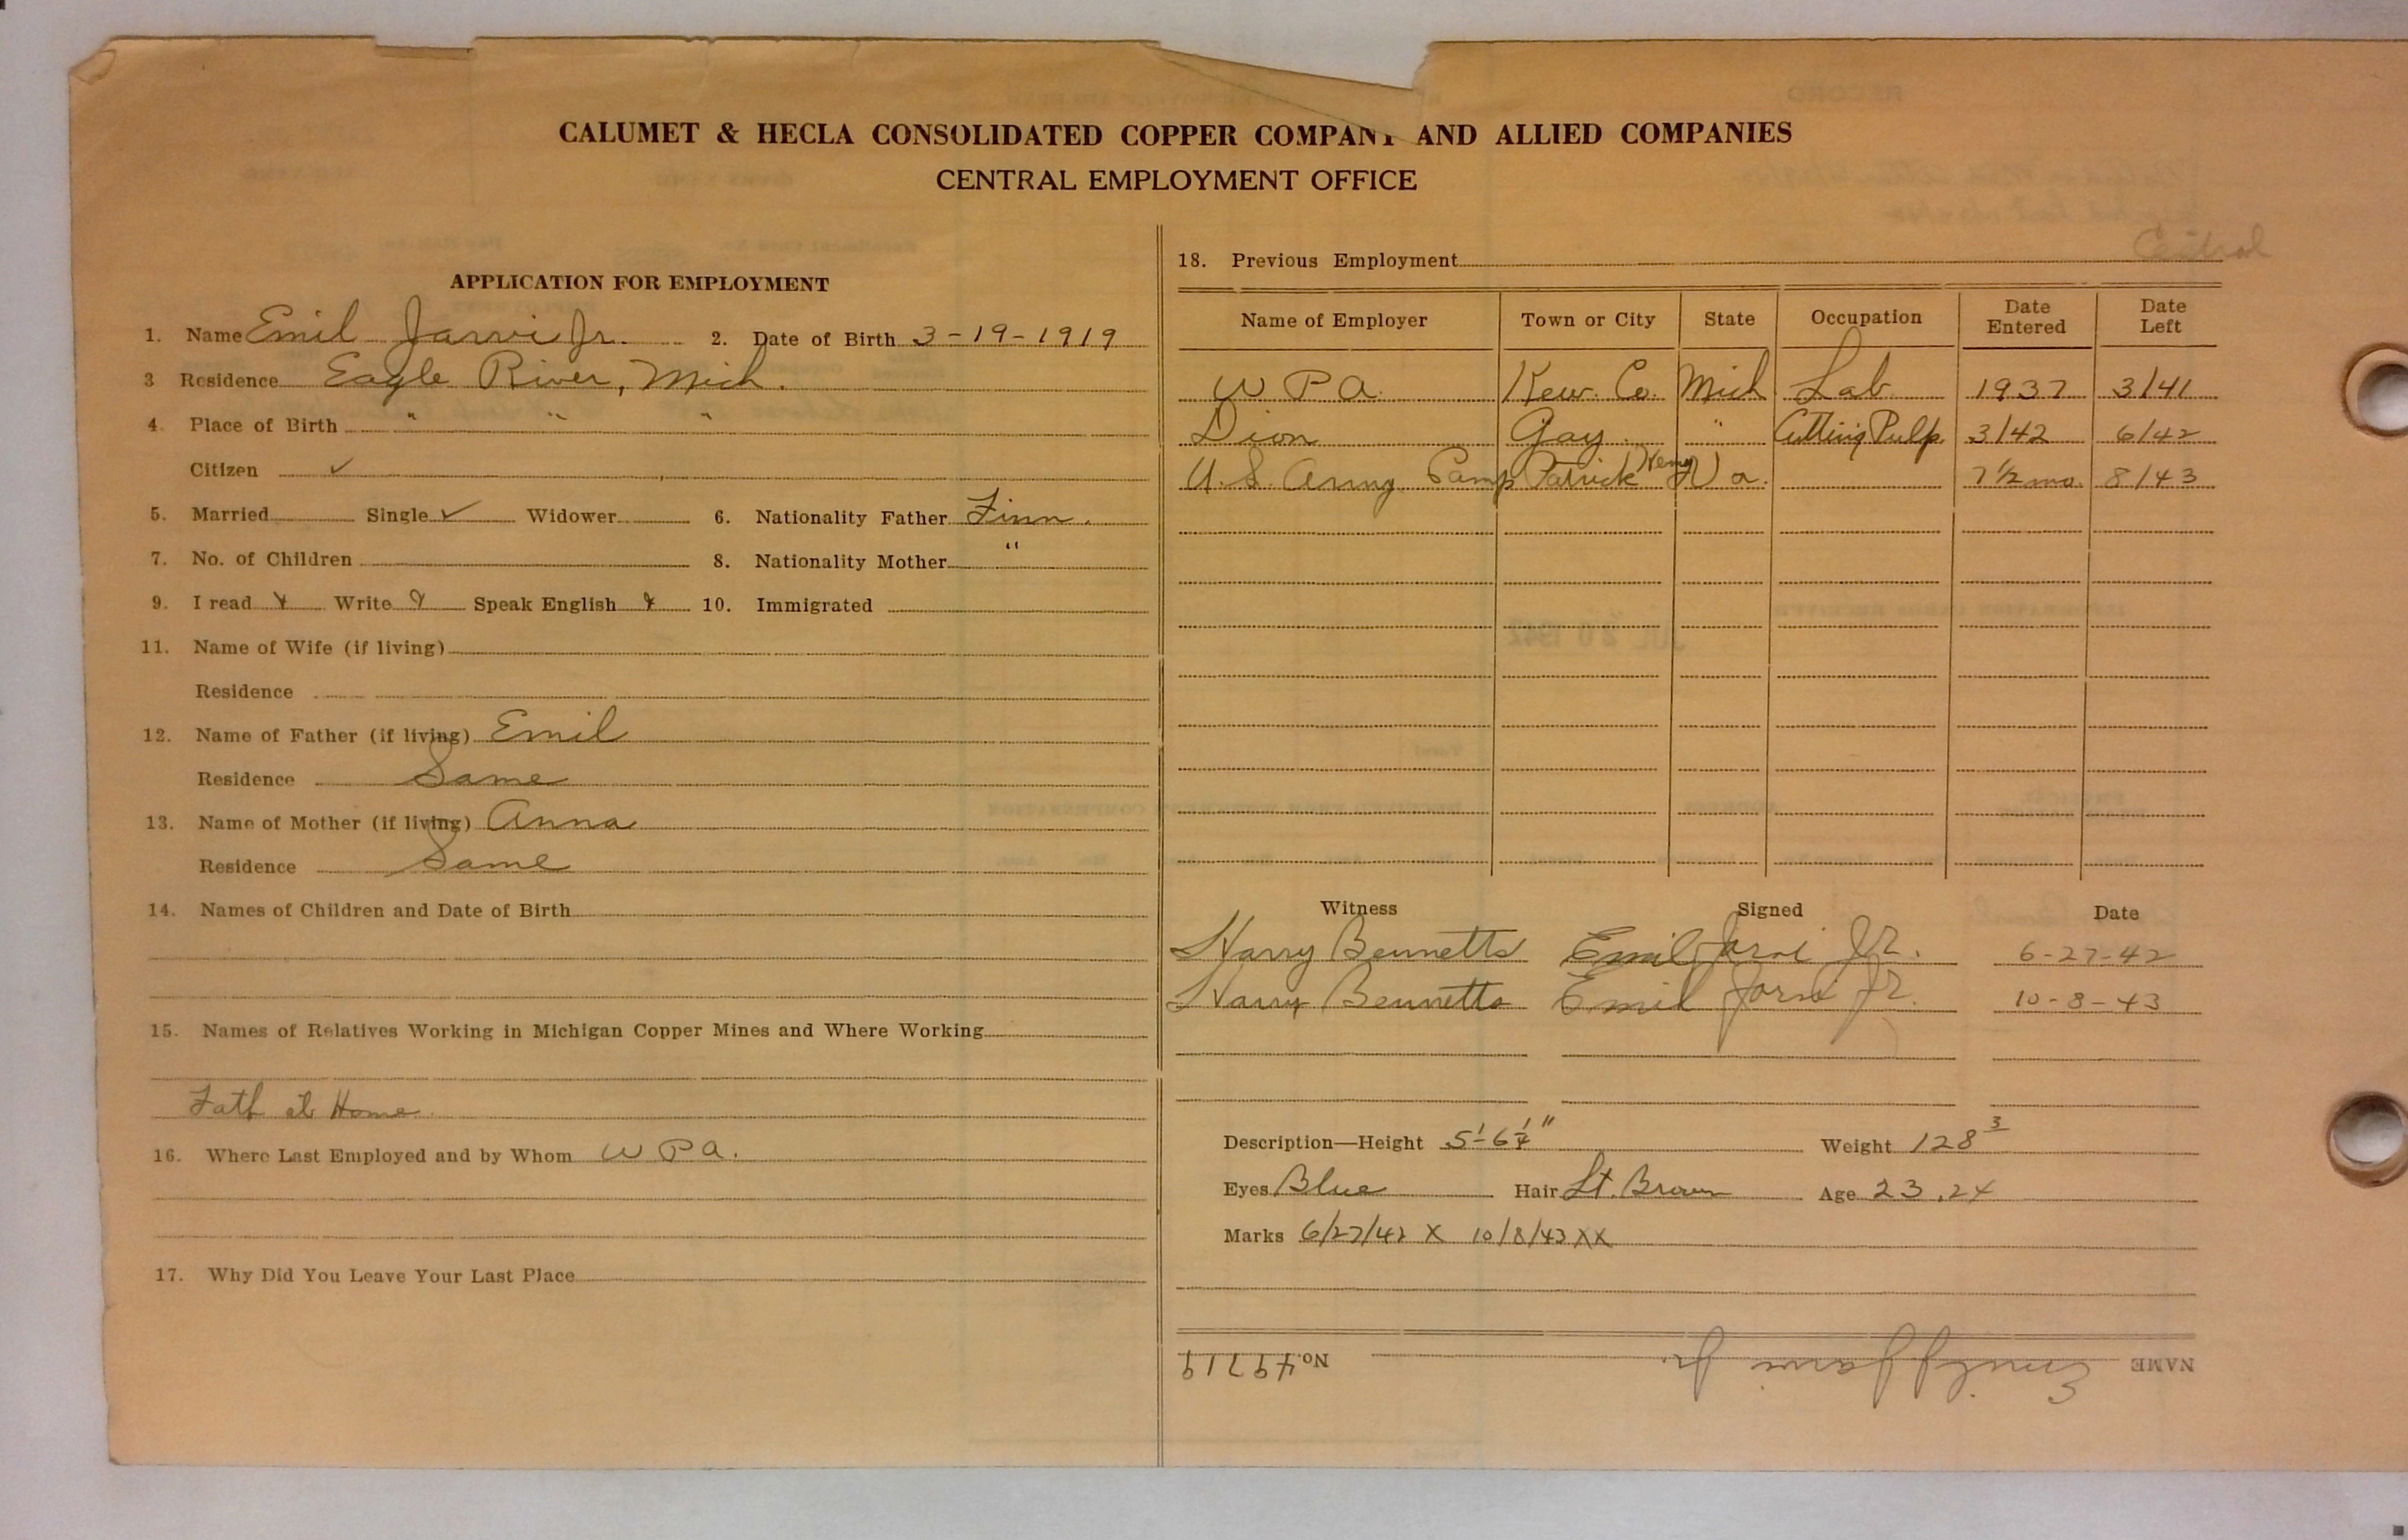 CALUMET & HECLA CONSOLIDATED COPPER COMPANY AND ALLIED COMPANIES
CENTRAL EMPLOYMENT OFFICE
APPLICATION FOR EMPLOYMENT
1. Name Emil Jarvi Jr. 2. Date of Birth 3-19-1919
3 Residence Eagle River, Mich.
4. Place of Birth " " "
Citizen ✓
5. Married Single ✓ Widower 6. Nationality Father Finn.
7. No. of Children 8. Nationality Mother "
9. I read Write Speak English 10. Immigrated
11. Name of Wife (if living)
Residence
12. Name of Father (if living) Emil
Residence Same
13. Name of Mother (if living) Anna
Residence Same
14. Names of Children and Date of Birth
15. Names of Relatives Working in Michigan Copper Mines and Where Working
Fath at Home
16. Where Last Employed and by Whom W P A.
17. Why Did You Leave Your Last Place
Central
18. Previous Employment
Name of Employer Town or City State Occupation Date Entered Date Left
W P A. Kew. Co. Mich Lab. 1937 3/41
Dion Gay " Cutting Pulp 3/42 6/42
U.S. Army Camp Patrick Henry Va. 7 1/2 mo. 8/43
Witness Signed Date
Harry Bennetts Emil Jarvi Jr. 6-27-42
Harry Bennetts Emil Jarvi Jr. 10-8-43
Description—Height 5'-6 1/4" Weight 128 3
Eyes Blue Hair Lt. Brown Age 23, 24
Marks 6/27/42 X 10/8/43 XX
NAME Emil Jarvi Jr. No. 49719